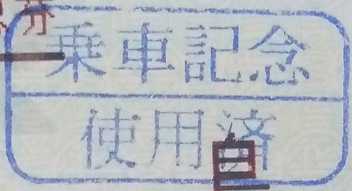 乗車記念
使用済